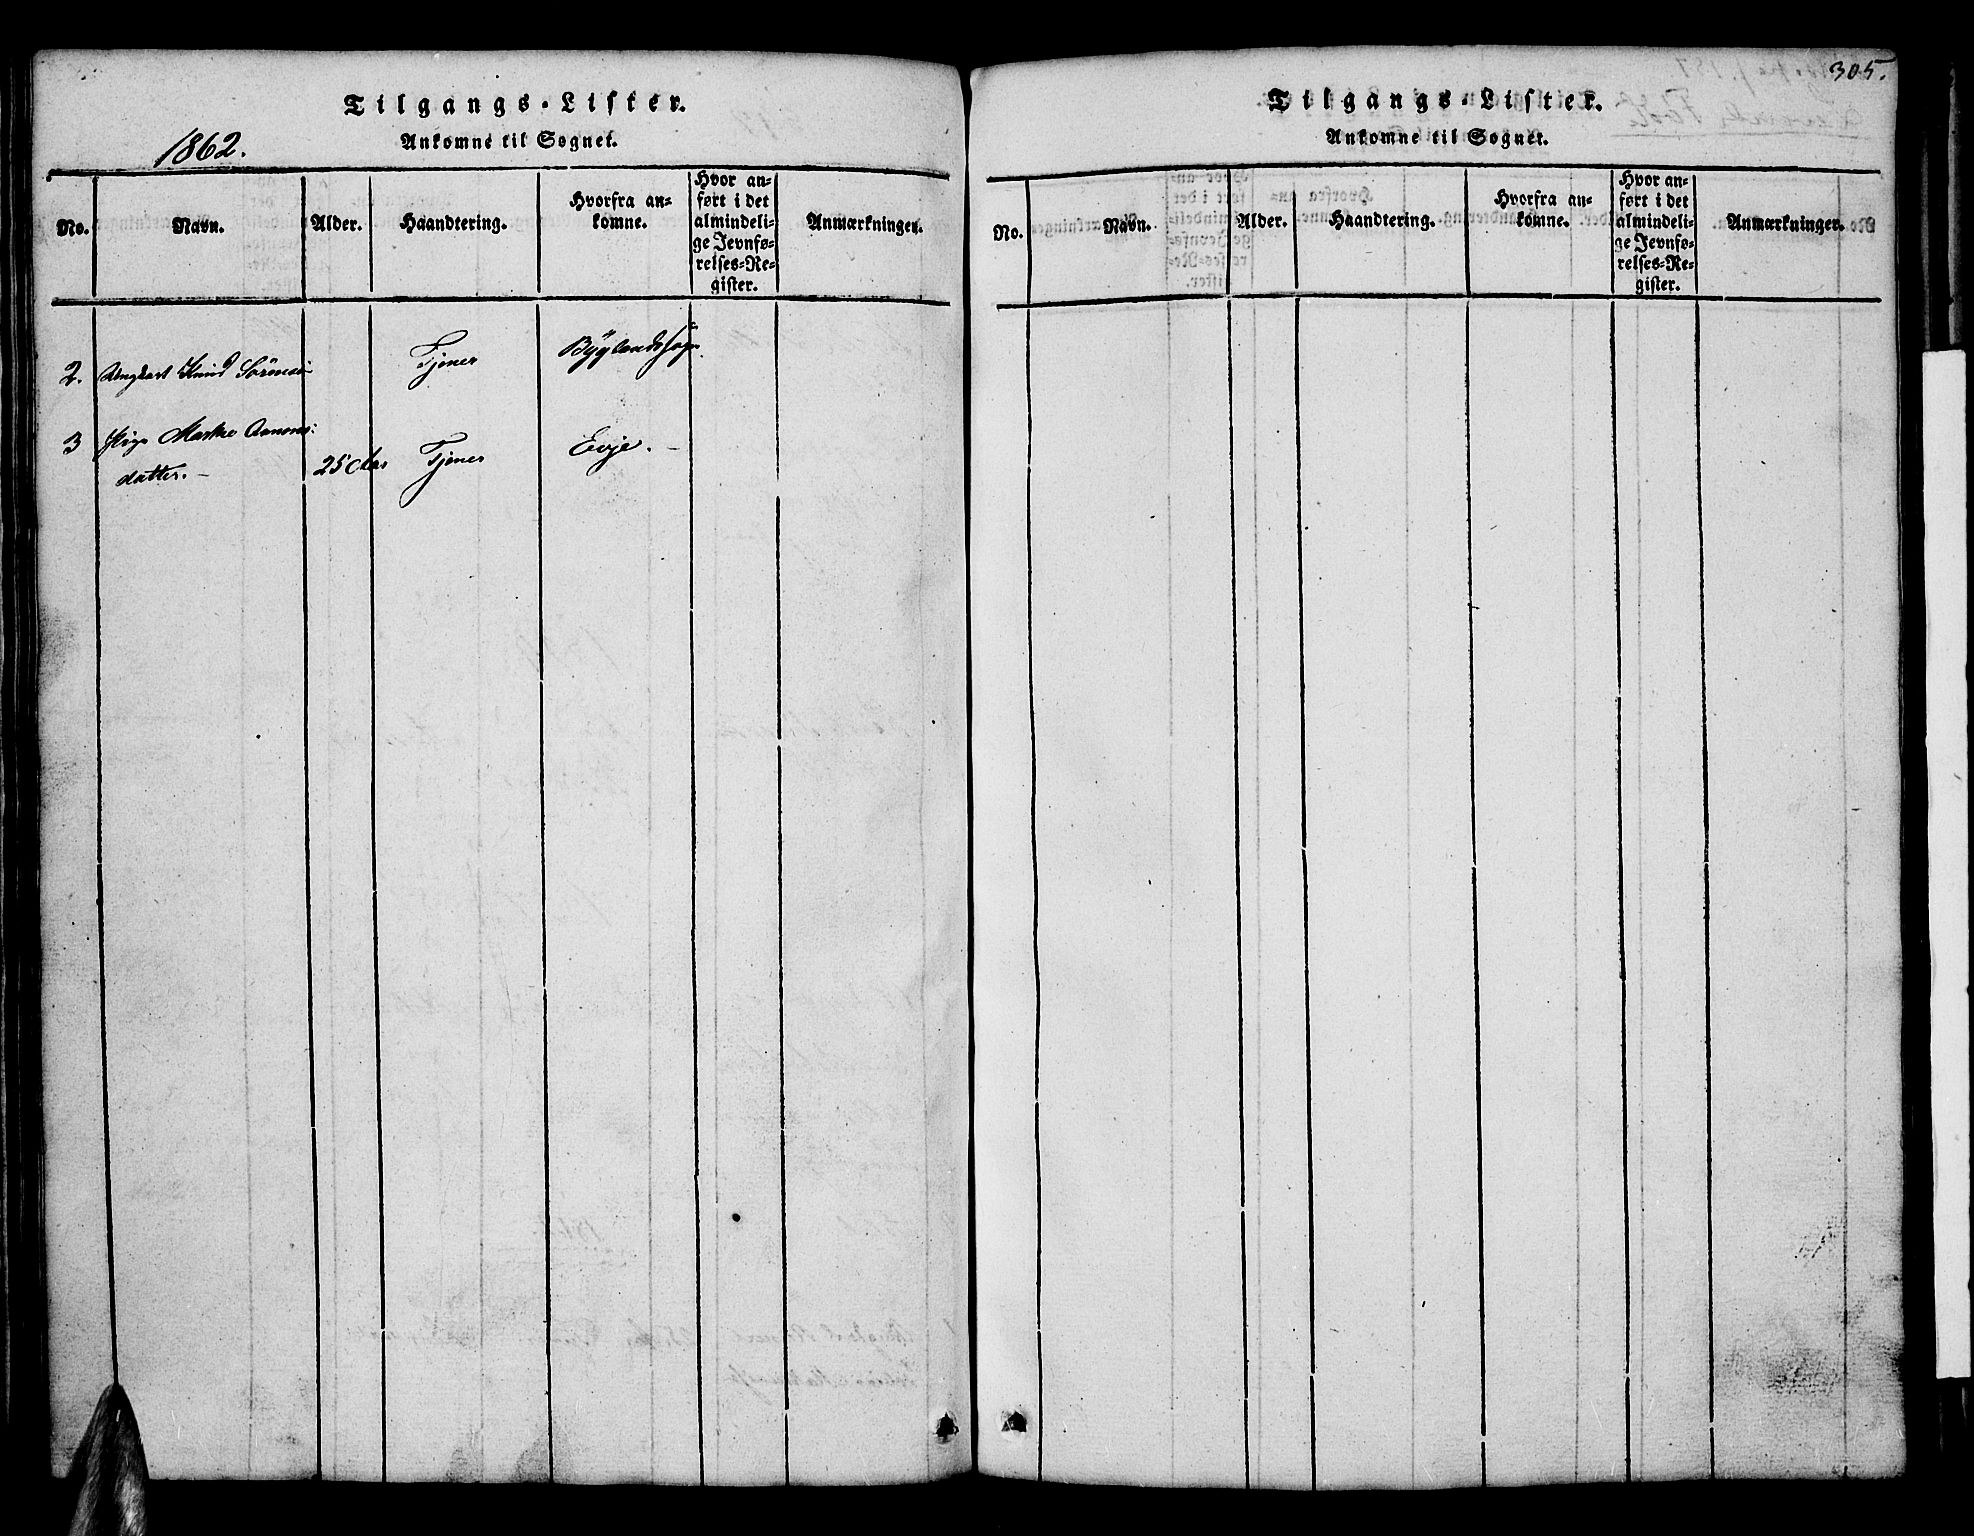 Tilgangs-Lister.
Ankomne til Sognet.
1862.
No.
Navn.
Alder.
Haandtering.
Hvorfra an-
komne.
Hvor an-
ført i det
almindeli-
ge Jevnfø-
relses-Re-
gister.
Anmærkninger.
2. Ungkarl Knud Sörensen Tjener Byglands sogn.
3 Pige Marthe Aanons:
datter. - 25 Aar Tjener Evje. -
305.
Tilgangs-Lister.
Ankomne til Sognet.
No.
Navn.
Alder.
Haandtering.
Hvorfra an-
komne.
Hvor an-
ført i det
almindeli-
ge Jevnfø-
relses-Re-
gister.
Anmærkninger.